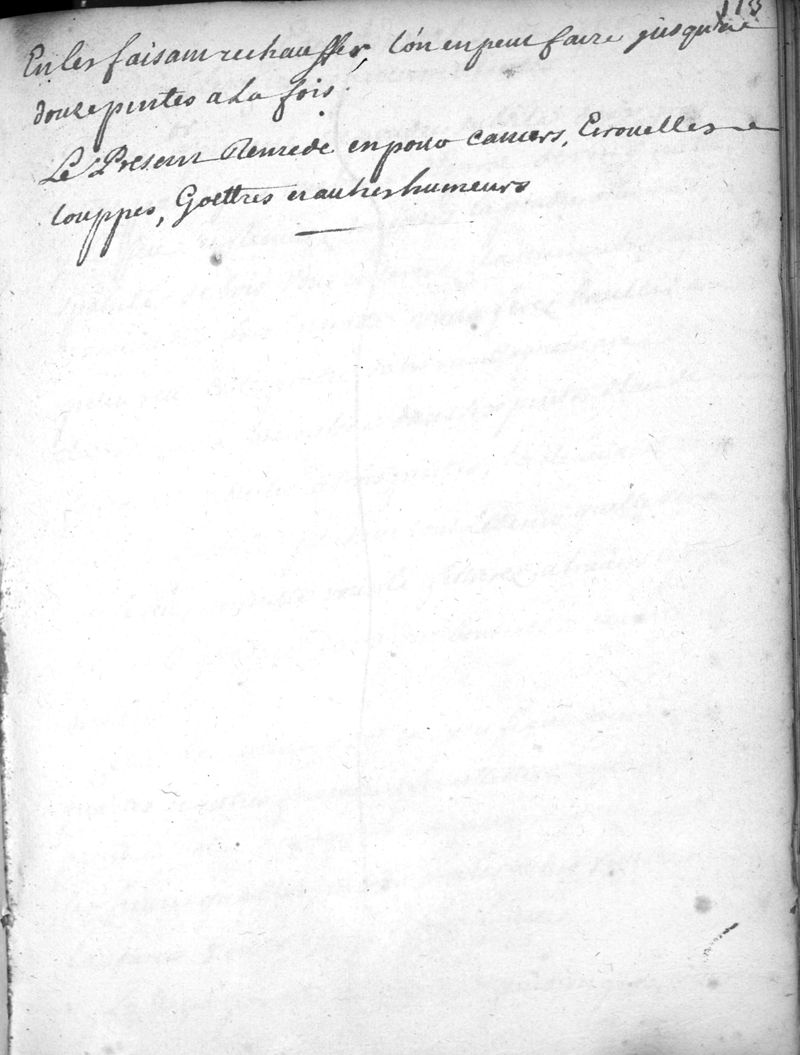 113
En les faisant rechauffer, l'on en peut faire jusqu'a
douze pintes a la fois.
Le Present Remede en pour cancers, Ecrouelles
Louppes, Goettres et autres humeurs